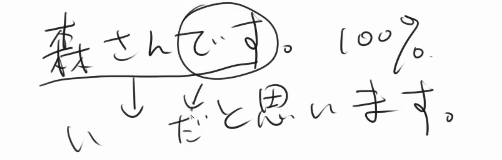 森さんです。 100%.
い だと思います。